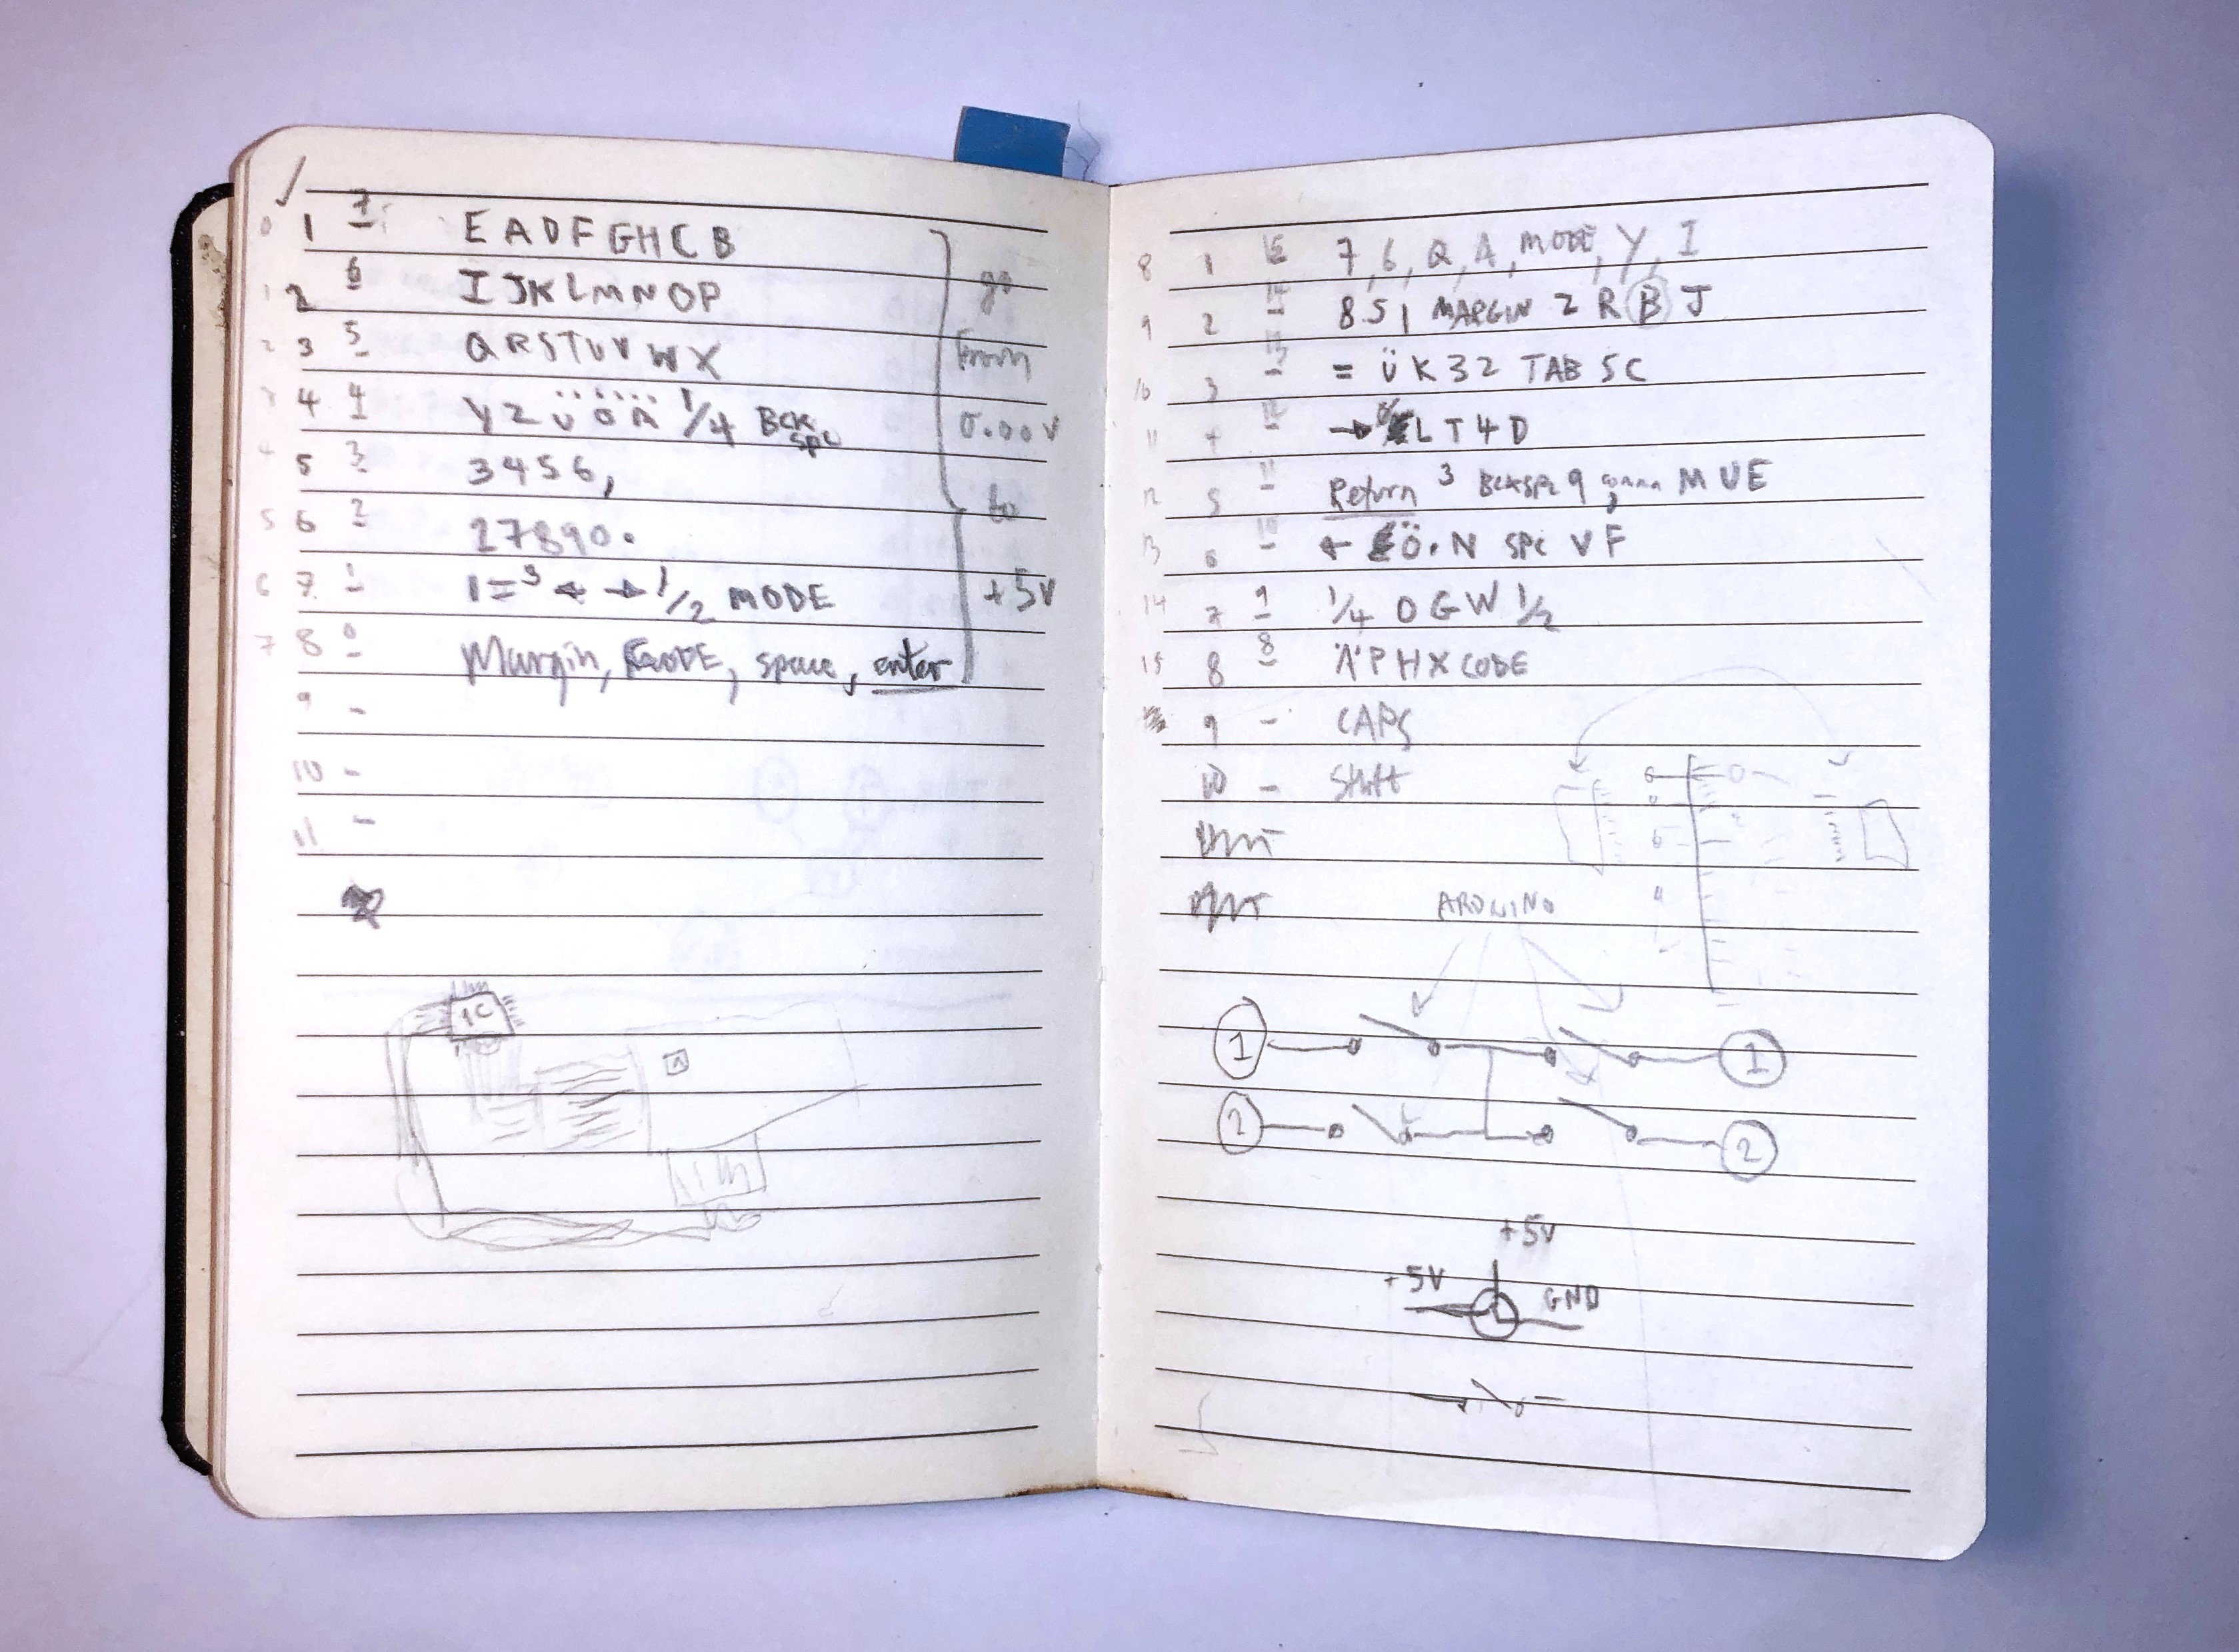 0 1 7 E A D F G H C B
1 2 6 I J K L M N O P
2 3 5 Q R S T U V W X
3 4 4 Y Z Ü Ö Ä 1/4 BCK SPC
4 5 3 3 4 5 6 ,
5 6 2 2 7 8 9 0 .
6 7 1 1 = 3 ← → 1/2 MODE
7 8 0 Margin, CODE, space, enter
9 -
10 -
11 -
go
from
0.00V
to
+5V
IC
A
8 1 15 7, 6, Q, A, MODE, Y, I
9 2 14 8 5 1 MARGIN Z R B J
10 3 13 = Ü K 3 2 TAB S C
11 4 12 → L T 4 D
12 5 11 Return 3 BCKSPC 9 comma M U E
13 6 10 ← Ö . N SPC V F
14 7 9 1/4 O G W 1/2
15 8 8 Ä P H X CODE
9 - CAPS
10 - Shift
ARDUINO
1 1
2 2
+5V
+5V GND